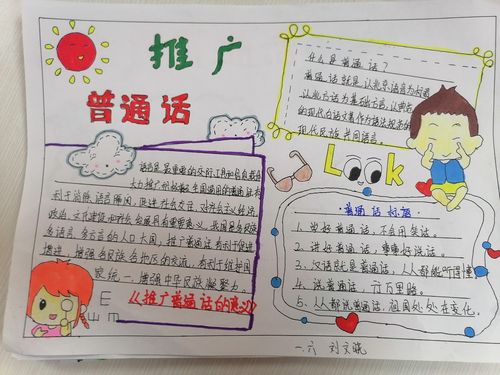 推广
普通话
什么是普通话？
普通话就是以北京语音为标准
以北方话为基础方言，以典范
的现代白话文著作为语法规范的
现代民族共同语言。
Look
语言是最重要的交际工具和信息载体
大力推广和积极全国通用的普通话有
利于消除语言隔阂，促进社会交往，对社会主义经济
政治、文化建设和社会发展具有重要意义。我国是多民族
多语言、多方言的人口大国，推广普通话有利于促进
增进各民族各地区的交流，有利于维护国
家统一，增强中华民族凝聚力。
《推广普通话的意义》
普通话标语
1、说好普通话，不当用笑话。
2、讲好普通话，事事好说话。
3、汉语就是普通话，人人都能听得懂
4、说普通话，行万里路。
5、人人都说普通话，祖国处处在变化。
E
山 m
一.六 刘文晓